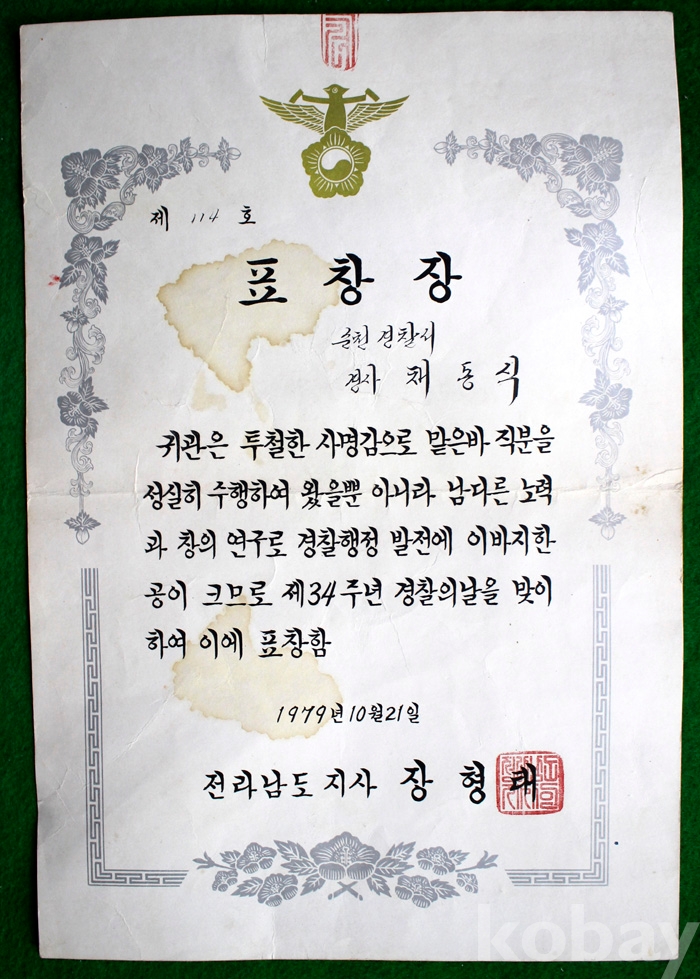 제 114 호
표창장
순천 경찰서
경사 채동식
귀관은 투철한 사명감으로 맡은바 직분을
성실히 수행하여 왔을뿐 아니라 남다른 노력
과 창의 연구로 경찰행정 발전에 이바지한
공이 크므로 제34주년 경찰의날을 맞이
하여 이에 표창함
1979년10월21일
전라남도지사 장형태
kobay